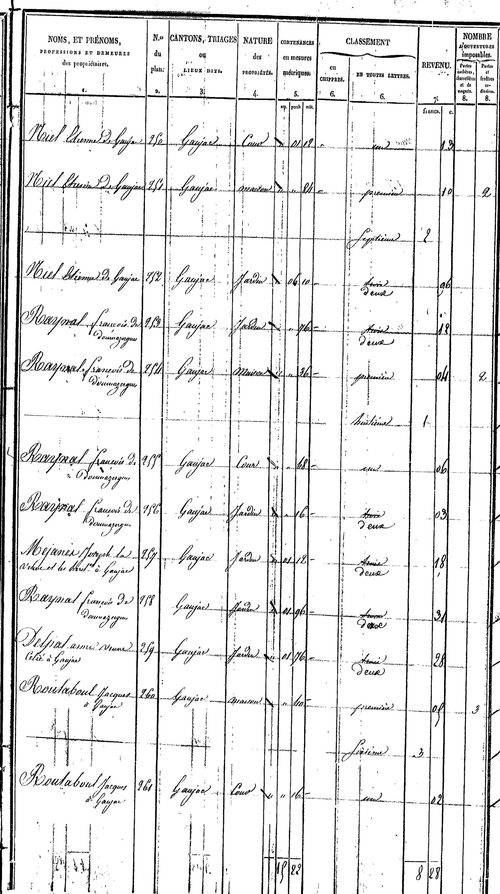 NOMS, ET PRÉNOMS, N.os CANTONS, TRIAGES NATURE CONTENANCES CLASSEMENT REVENU. NOMBRE
PROFESSIONS ET DEMEURES du ou des en mesures en EN TOUTES LETTRES. D'OUVERTURES
des propriétaires. plan. LIEUX DITS. PROPRIÉTÉS. métriques. CHIFFRES. imposables.
1. 2. 3. 4. 5. 6. 6. 7. 8. 8.
francs. c.
Niel Etienne de Gaujac 250 Gaujac Cour 01 12 un 13
Niel Etienne de Gaujac 251 Gaujac maison 84 première 10 2
Septième 2
Niel Etienne de Gaujac 252 Gaujac Jardin 06 10 trois 96
deux
Raynal françois de 253 Gaujac Jardin 76 trois 12
Doumazergues deux
Raynal françois de 254 Gaujac Maison 36 première 04 2
Doumazergues
huitième 1
Raynal françois de 255 Gaujac Cour 68 un 06
Doumazergues
Raynal françois de 256 Gaujac Jardin 16 trois 03
Doumazergues deux
Mejanes Joseph la 257 Gaujac Jardin 01 12 trois 18
veuve et les à Gaujac deux
Raynal françois de 258 Gaujac Jardin 01 96 trois 31
Doumazergues deux
Delpal anne veuve 259 Gaujac Jardin 01 76 trois 28
à Gaujac deux
Routaboul Jacques 260 Gaujac maison 40 première 05 3
à Gaujac
Sixième 3
Routaboul Jacques 261 Gaujac Cour 16 un 02
à Gaujac
15 23 8 28